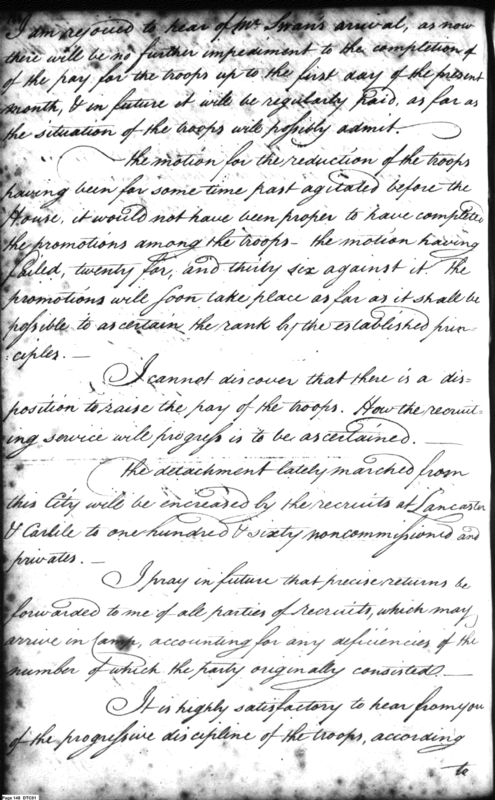 I am rejoiced to hear of Mr Swan's arrival, as now
there will be no further impediment to the completion of
of the pay for the troops up to the first day of the present
month, & in future it will be regularly paid, as far as
the situation of the troops will possibly admit.
the motion for the reduction of the troops
having been for some time past agitated before the
House, it would not have been proper to have completed
the promotions among the troops – the motion having
failed, twenty for, and thirty six against it the
promotions will soon take place as far as it shall be
possible to ascertain the rank by the established prin-
:ciples. –
I cannot discover that there is a dis=
position to raise the pay of the troops. How the recruit=
ing service will progress is to be ascertained. –
the detachment lately marched from
this City will be encreased by the recruits at Lancaster
& Carlile to one hundred & sixty noncommissioned and
privates. –
I pray in future that precise returns be
forwarded to me of all parties of recruits, which may
arrive in Camp, accounting for any deficiencies of the
number of which the party originally consisted. –
It is highly satisfactory to hear from you
of the progressive discipline of the troops, according
to
Page 148 DTC01